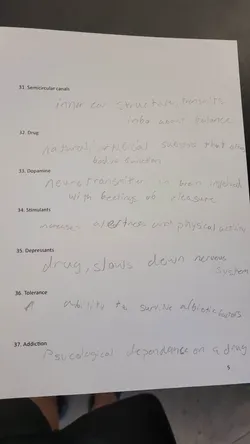 31. Semicircular canals
inner ear structure, transmits
info about balance
32. Drug
natural artificial substance that alters
bodie function
33. Dopamine
neurotransmiter in brain involved
with feeling of pleasure
34. Stimulants
alertness and physical activity
35. Depressants
drug, slows down nervous
system
36. Tolerance
Ability to survive abiotic factors
37. Addiction
Psicological dependance on a drug
5